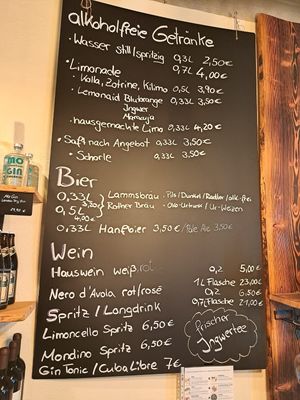 alkoholfreie Getränke
• Wasser still/spritzig 0,3L 2,50€
0,7L 4,00€
• Limonade
• Kolla, Zotrine, Kilimo 0,5L 3,90€
• Lemonaid Blutorange 0,33L 3,50€
Ingwer
Mamaya
• hausgemachte Limo 0,33L 4,20€
• Saft nach Angebot 0,33L 3,50€
• Schorle 0,33L 3,50€
Bier
0,33/ 3,50€ Lammsbräu - Pils/Dunkel/Radler/alk.frei
0,5L 4,00€ Rother Bräu - Öko-Urtrunk/Ur-Weizen
0,33L Hanfbier 3,50€/Pale Ale 3,50€
Wein
Hauswein weiß, rot 0,2 5,00€
1L Flasche 23,00€
Nero d'Avola rot/rosé 0,2 6,50€
0,7L Flasche 21,00€
Spritz/Longdrink
Limoncello Spritz 6,50€
Mondino Spritz 6,50€
Gin Tonic/Cuba Libre 7€
Frischer
Ingwertee
MO
GIN